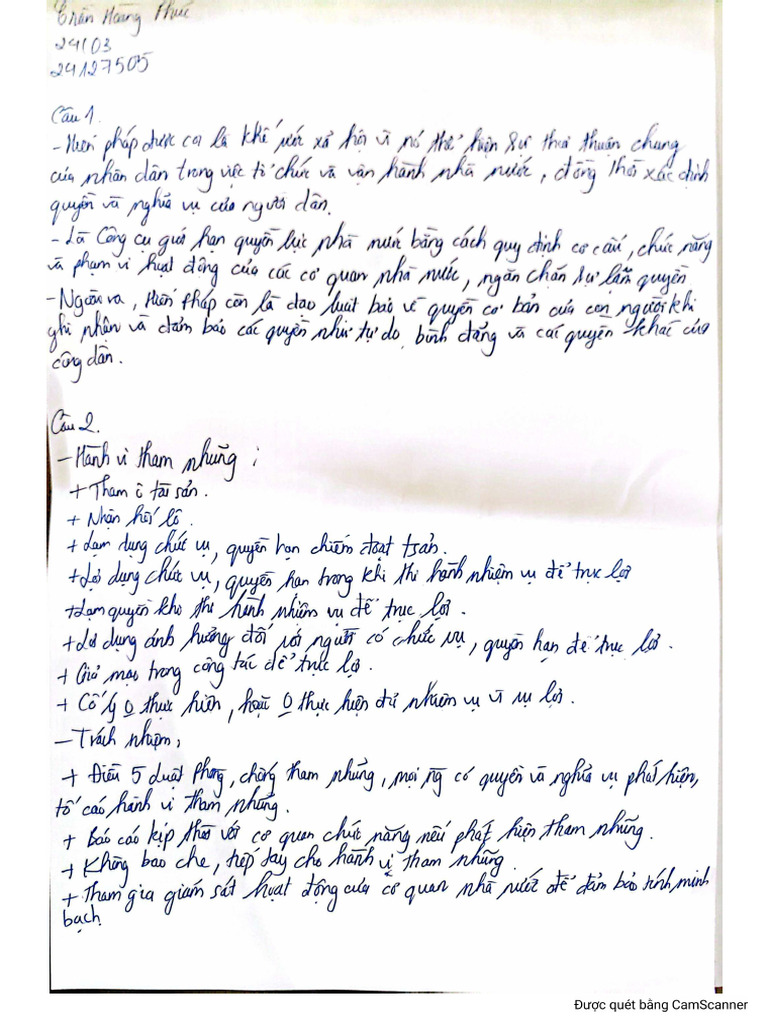 Trần Hoàng Phúc
24103
24127505
Câu 1.
- Hiến pháp được coi là khế ước xã hội vì nó thể hiện sự thoả thuận chung
của nhân dân trong việc tổ chức và vận hành nhà nước, đồng thời xác định
quyền và nghĩa vụ của người dân.
- Là công cụ giới hạn quyền lực nhà nước bằng cách quy định cơ cấu, chức năng
và phạm vi hoạt động của các cơ quan nhà nước, ngăn chặn sự lạm quyền
- Ngoài ra, Hiến pháp còn là đạo luật bảo vệ quyền cơ bản của con người khi
ghi nhận và đảm bảo các quyền như tự do, bình đẳng và các quyền khác của
công dân.
Câu 2.
- Hành vi tham nhũng:
+ Tham ô tài sản.
+ Nhận hối lộ.
+ Lạm dụng chức vụ, quyền hạn chiếm đoạt tsản.
+ Lợi dụng chức vụ, quyền hạn trong khi thi hành nhiệm vụ để trục lợi
+ Lạm quyền kho thi hành nhiệm vụ để trục lợi.
+ Lợi dụng ảnh hưởng đối với người có chức vụ, quyền hạn để trục lợi.
+ Giả mạo trong công tác để trục lợi.
+ Cố ý 0 thực hiện, hoặc 0 thực hiện đủ nhiệm vụ vì vụ lợi.
- Trách nhiệm:
+ Điều 5 Luật Phòng, chống tham nhũng, mọi ng có quyền và nghĩa vụ phát hiện,
tố cáo hành vi tham nhũng.
+ Báo cáo kịp thời với cơ quan chức năng nếu phát hiện tham nhũng.
+ Không bao che, tiếp tay cho hành vi tham nhũng
+ Tham gia giám sát hoạt động của cơ quan nhà nước để đảm bảo tính minh
bạch
Được quét bằng CamScanner